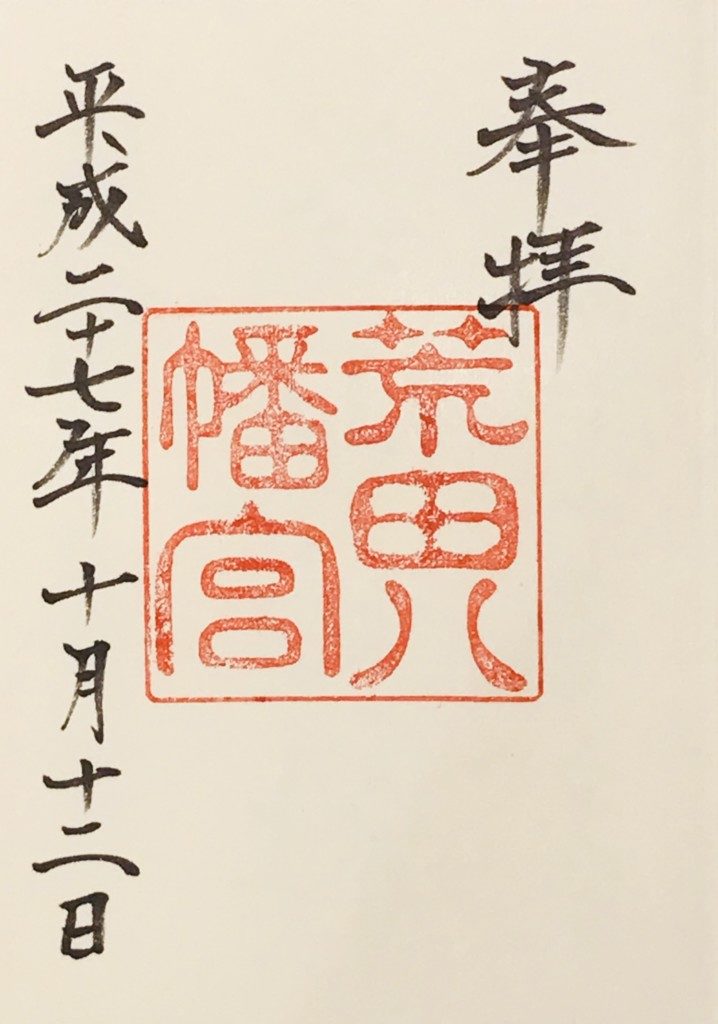 奉拝
荒田八
幡宮
平成二十七年十月十二日